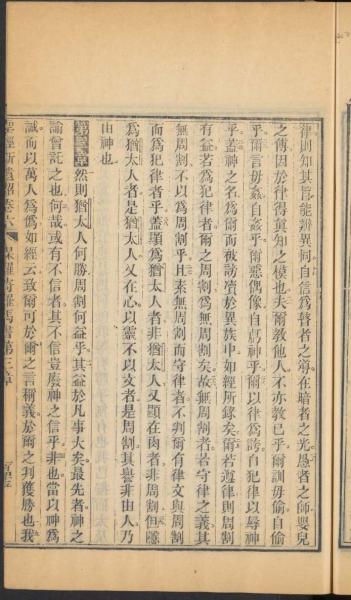 律則知其旨能辨異同自信為瞽者之導在暗者之光愚者之師嬰兒
之傳因於律得眞知之模也夫爾教他人不亦教己乎爾訓毋偷自偷
乎爾言毋姦自姦乎爾惡偶像自虧神乎爾以律為誇自犯律以辱神
乎蓋神之名為爾而被謗瀆於異族中如經所錄矣爾若遵律則周割
有益若為犯律者爾之周割為無周割矣故無周割者若守律之義其
無周割不以為周割乎且素無周割而守律者不判爾有律文與周割
而為犯律者乎蓋顯為猶太人者非猶太人又顯在肉者非周割但隱
為猶太人者是猶太人又在心以靈不以文者是周割其譽非由人乃
由神也
第三章 然則猶太人何勝周割何益乎其益於凡事大矣最先者神之
諭曾託之也何哉或有不信者其不信豈廢神之信乎非也當以神為
誠而以萬人為偽如經云致爾可於爾之言稱義於爾之判獲勝也我
聖經新遺詔卷六 保羅寄羅馬書第三章